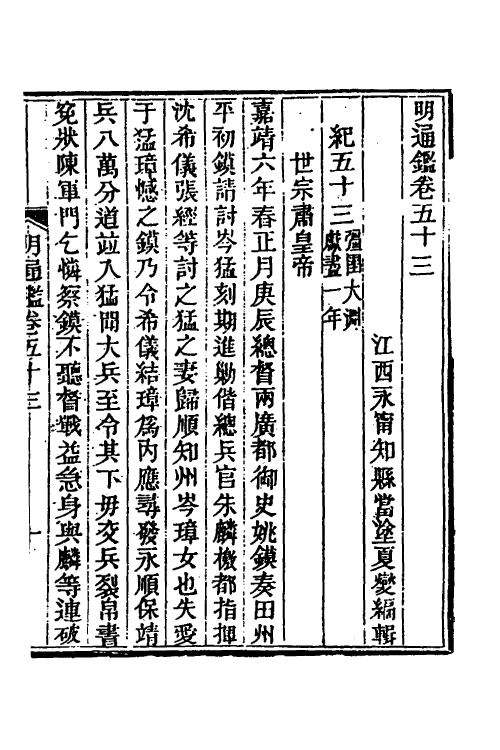 明通鑑卷五十三
江西永甯知縣當塗夏燮編輯
紀五十三彊圉大淵獻盡一年
世宗肅皇帝
嘉靖六年春正月庚辰總督兩廣都御史姚鏌奏田州
平初鏌請討岑猛刻期進勦偕總兵官朱麟檄都指揮
沈希儀張經等討之猛之妻歸順知州岑璋女也失愛
于猛璋憾之鏌乃令希儀結璋爲內應尋發永順保靖
兵八萬分道竝入猛聞大兵至令其下毋交兵裂帛書
冤狀陳軍門乞憐察鏌不聽督戰益急身與麟等連破
明通鑑卷五十三
一